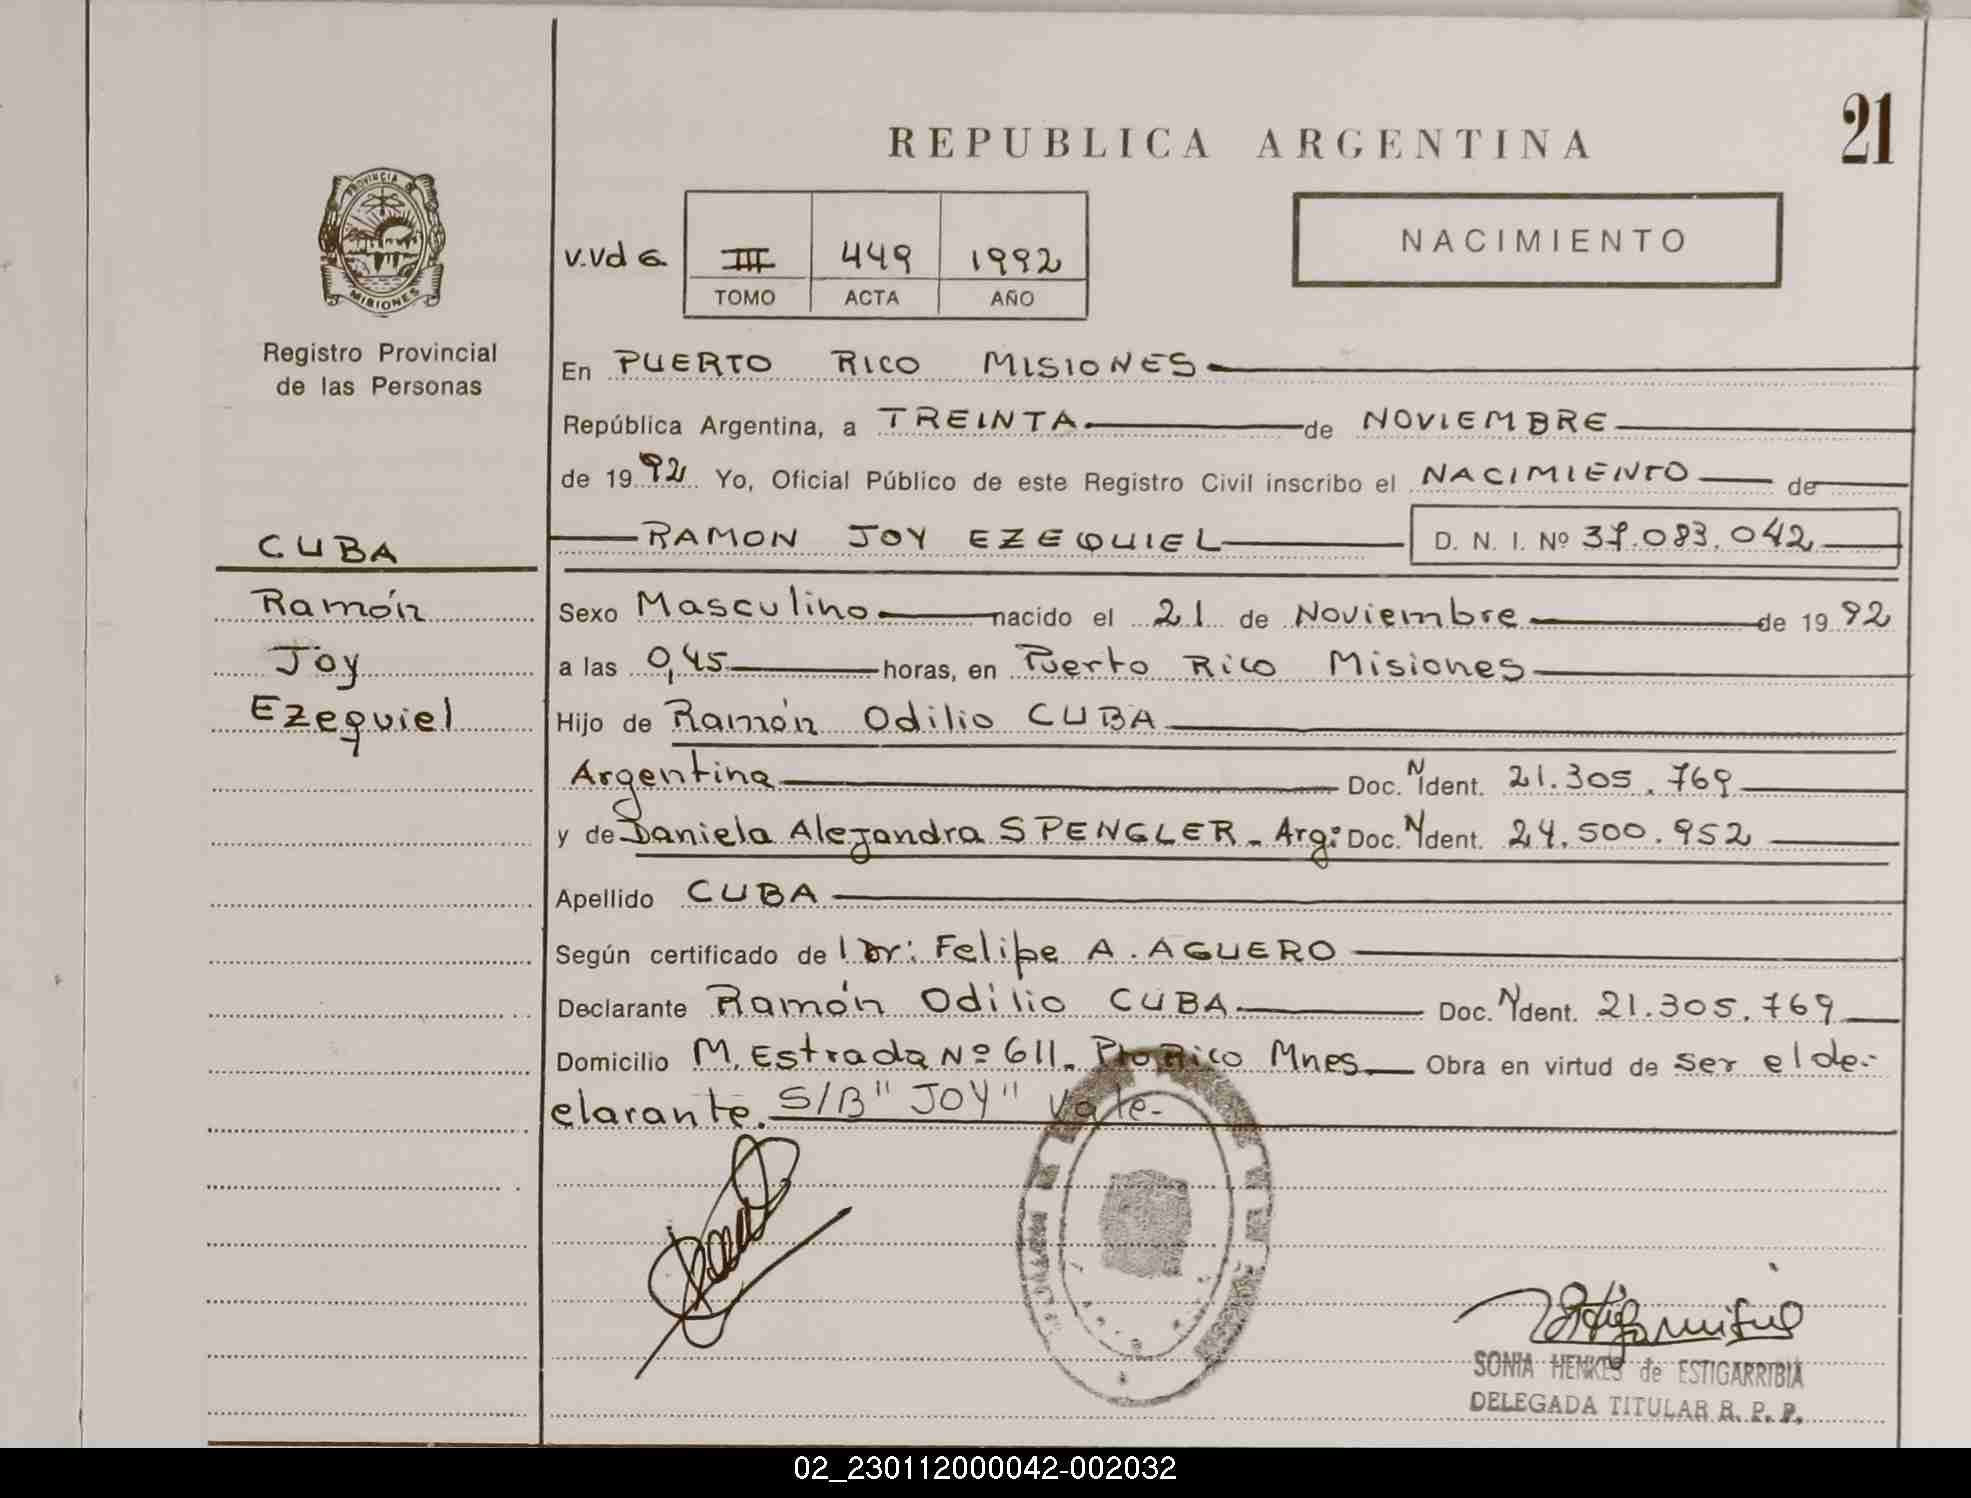 21
REPUBLICA ARGENTINA
NACIMIENTO
PROVINCIA DE
MISIONES
Registro Provincial
de las Personas
V.Vda III 449 1992
TOMO ACTA AÑO
En PUERTO RICO MISIONES
República Argentina, a TREINTA de NOVIEMBRE
de 1992 Yo, Oficial Público de este Registro Civil inscribo el NACIMIENTO de
RAMON JOY EZEQUIEL D. N. I. Nº 37.083.042
CUBA
Ramón
Joy
Ezequiel
Sexo Masculino nacido el 21 de Noviembre de 1992
a las 0,45 horas, en Puerto Rico Misiones
Hijo de Ramón Odilio CUBA
Argentina Doc. N Ident. 21.305.769
y de Daniela Alejandra SPENGLER - Arg: Doc. N Ident. 24.500.952
Apellido CUBA
Según certificado de l Dr: Felipe A. AGUERO
Declarante Ramón Odilio CUBA Doc. N Ident. 21.305.769
Domicilio M. Estrada Nº 611. Pto Rico Mnes Obra en virtud de ser el de-
clarante. S/B "JOY" Vale-
SONIA HENKES de ESTIGARRIBIA
DELEGADA TITULAR R. P. P.
02_230112000042-002032